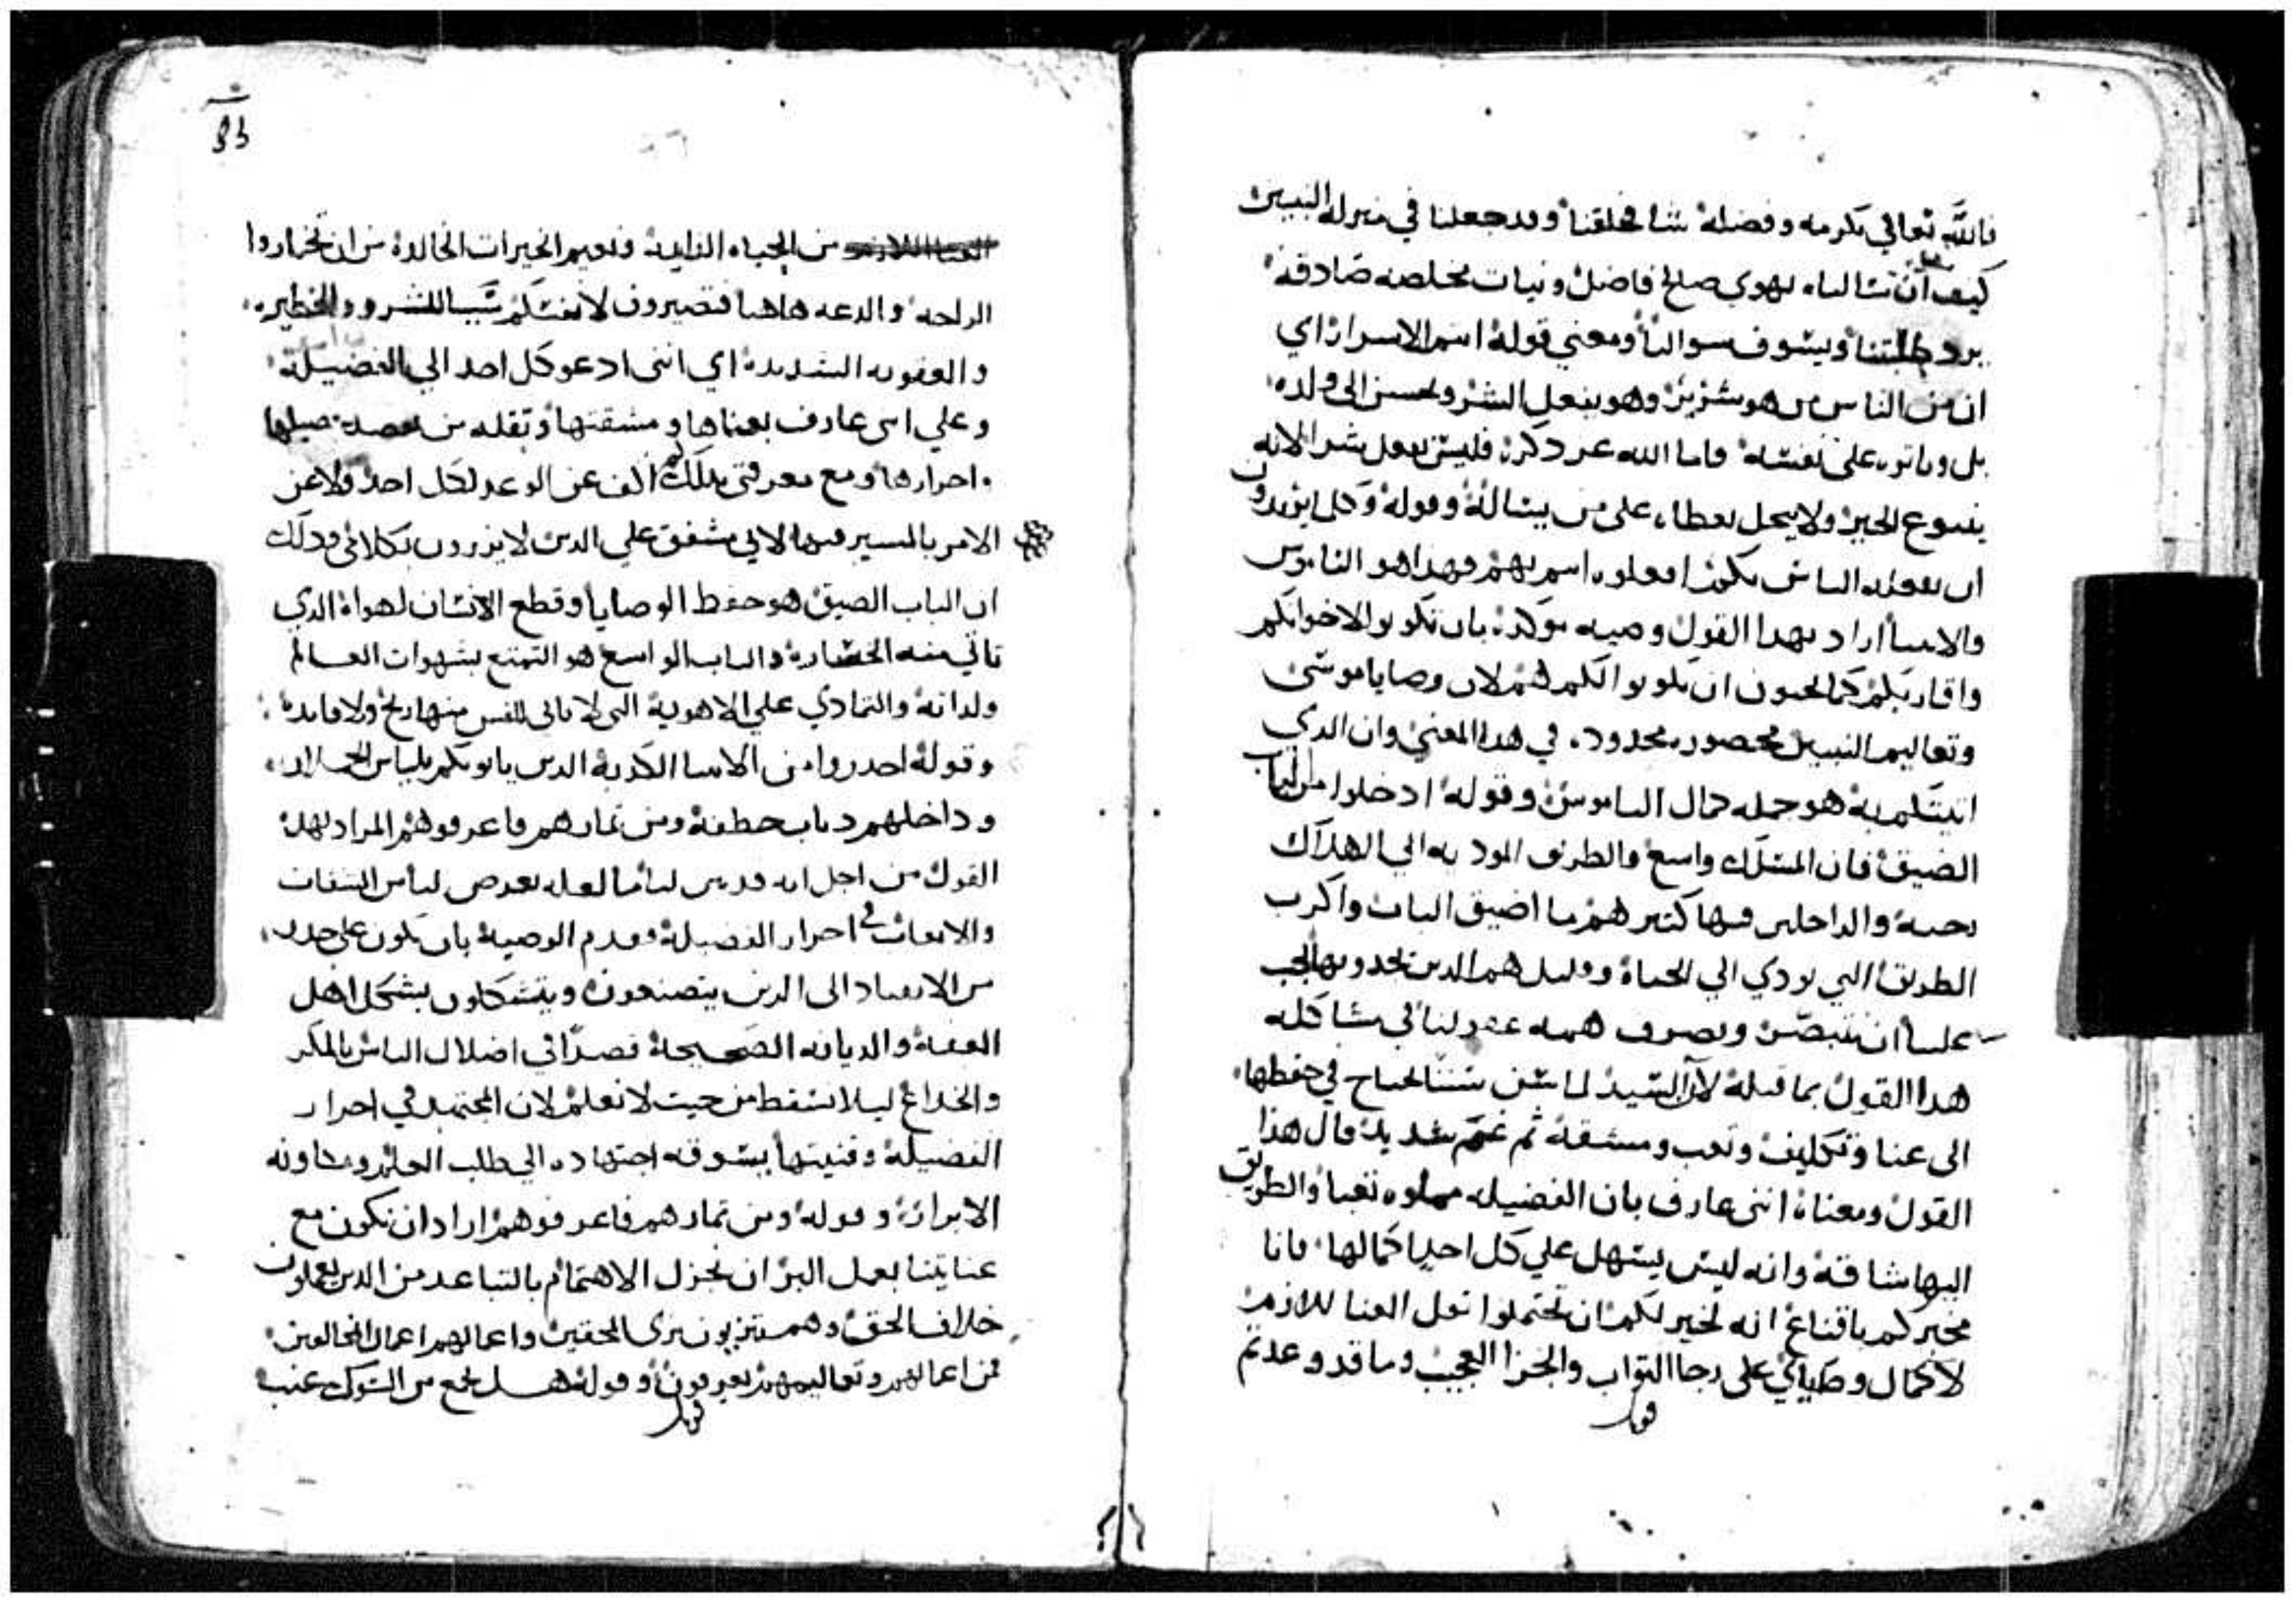 فالله تعالي بكرمه وفضله شا فخلقنا وقد جعلنا في منزلة البنين
كيف ان نسالناه بهوي صالح فاضل ونيات مخلصه صادقه
يرد طلبتنا ويسوف سوالنا ومعني قوله انتم الاسرار اي
ان من الناس من هو شرير وهو يفعل الشر ويحسن الى ولده
بل وياتره على نفسه فاما الله عز ذكره فليس يفعل شرا لانه
ينبوع الخير ولا يبخل بعطاه على من يساله وقوله وكلما تريدون
ان يفعله الناس بكم افعلوه انتم بهم فهذا هو الناموس
والانبيا اراد بهدا القول وصيه موكده بان تكونوا لاخوانكم
واقاربكم كما تحبون ان يكونوا لكم هم لان وصايا موسى
وتعاليم النبيين محصوره محدوده في هدا المعني وان الدي
اتيتكم به هو جمله كمال الناموس وقوله ادخلوا من الباب
الضيق فان المسلك واسع والطريق الموديه الي الهلاك
رحبه والداخلين فيها كتير هم ما اضيق الباب واكرب
الطريق التي تودي الي الحياه وقليل هم الدين يجدونها يجب
علينا ان نتبصر ونصرف همه عقولنا في مشاكله
هدا القول بما قبله لان السيد لما سن سننا تحتاج في حفظها
الى عنا وتكليف وتعب ومشقه ثم غم شديد قال هذا
القول ومعناه انني عارف بان الفضيله مملوه تعبا والطريق
اليها شاقه وانه ليس يسهل علي كل احد اكمالها فانا
مخبركم باقناع انه لخير لكم ان تحتملوا تعل العنا للازم
لاكمال وصاياي على رجا التواب والجزا العجيب وما قد وعدتم
قوبل
من الحياه الدايمه ونعيم الخيرات الخالده من ان تختاروا
الراحه والدعه هاهنا فتصيرون لانفسكم سببا للشرور الخطيره
والعقوبه الشديده اي انني ادعو كل احد الي الفضيله
وعلي اني عارف بعناها ومشقتها وتقله من يقصد
احرازها ومع معرفتي بدلك لم اكف عن الوعد لكل احد ولا عن
الامر بالمسير فيها لاني مشفق علي الدين لا يزرون بكلامي ودلك
ان الباب الضيق هو حفظ الوصايا وقطع الانسان لهواه الدي
تاتي منه الخساره والباب الواسع هو التمتع بشهوات العالم
ولداته والتمادي علي الاهويه التي لا ياتي للنفس منها ربح ولا فايده
وقوله احدروا من الانبيا الكدبه الدين ياتونكم بلباس الحملان
وداخلهم دياب خطفه ومن تمارهم فاعرفوهم المراد بهدا
القول من اجل انه
والاتعاب في احراز الفضيله وقدم الوصيه بان نكون على حدر
من الانقياد الى الدين يتصنعون ويتشكلون بشكل اهل
العفه والديانه الصحيحه قصدا في اضلال الناس بالمكر
والخداع ليلا نسقط من حيت لا نعلم لان المجتهد في احراز
الفضيله وقنيتها يسوقه اجتهاده الي طلب العلم ومشاوره
الابرار وقوله ومن تمارهم فاعرفوهم اراد ان نكون مع
عنايتنا بعمل البر ان نجزل الاهتمام بالتباعد من الدين يعملون
خلاف الحق وهم متزيون بزي المحقين واعمالهم اعمال المخالفين
فمن اعمالهم وتعاليمهم يعرفون وقوله هل يجمع من الشوك عنب
قوبل